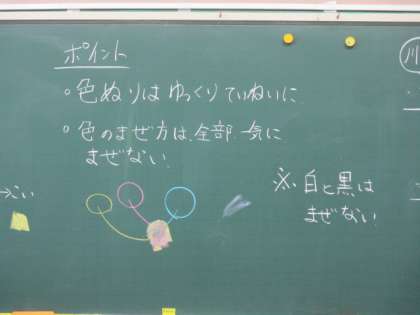 ポイント
。色ぬりはゆっくりていねいに
。色のまぜ方は、全部一気に
まぜない。
→こい
※白と黒は
まぜない
川